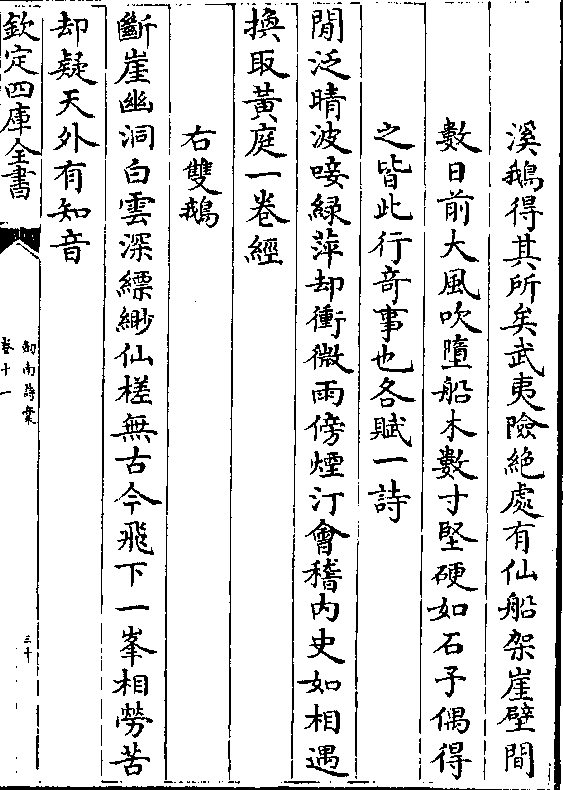 溪鵝得其所矣武夷險絶處有仙船架崖壁間
數日前大風吹墮船木數寸堅硬如石予偶得
之皆此行竒事也各賦一詩
閒泛晴波唼緑萍却衝微雨傍煙汀會稽内史如相遇
換取黃庭一卷經
右雙鵝
斷崖幽洞白雲深縹緲仙槎無古今飛下一峯相勞苦
却疑天外有知音
欽定四庫全書
劒南詩槀
卷十一
三十